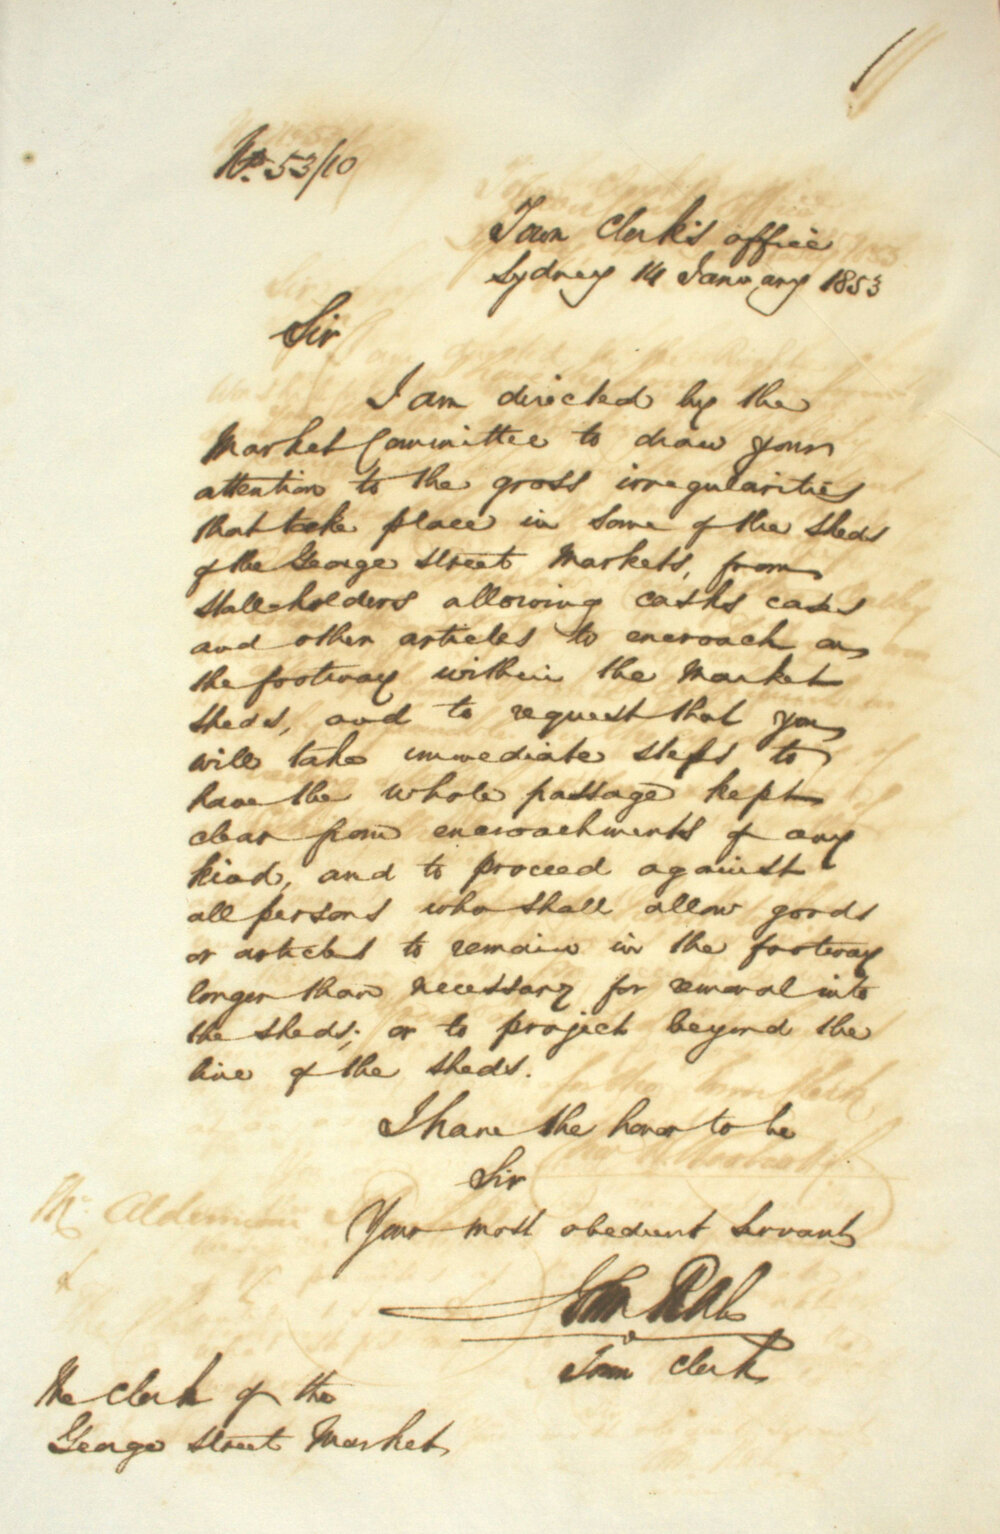 No. 53/10
Town Clerk's office
Sydney 14 January 1853
Sir
I am directed by the
Market Committee to draw your
attention to the gross irregularities
that take place in some of the sheds
of the George Street Markets, from
Stall-holders allowing casks cases
and other articles to encroach on
the footway within the Market
sheds, and to request that you
will take immediate steps to
have the whole passage kept
clear from encroachments of any
kind, and to proceed against
all persons who shall allow goods
or articles to remain in the footway
longer than necessary for removal into
the sheds; or to project beyond the
line of the sheds.
I have the honor to be
Sir
Your most obedient Servant
John
Town Clerk
The Clerk of the
George Street Market